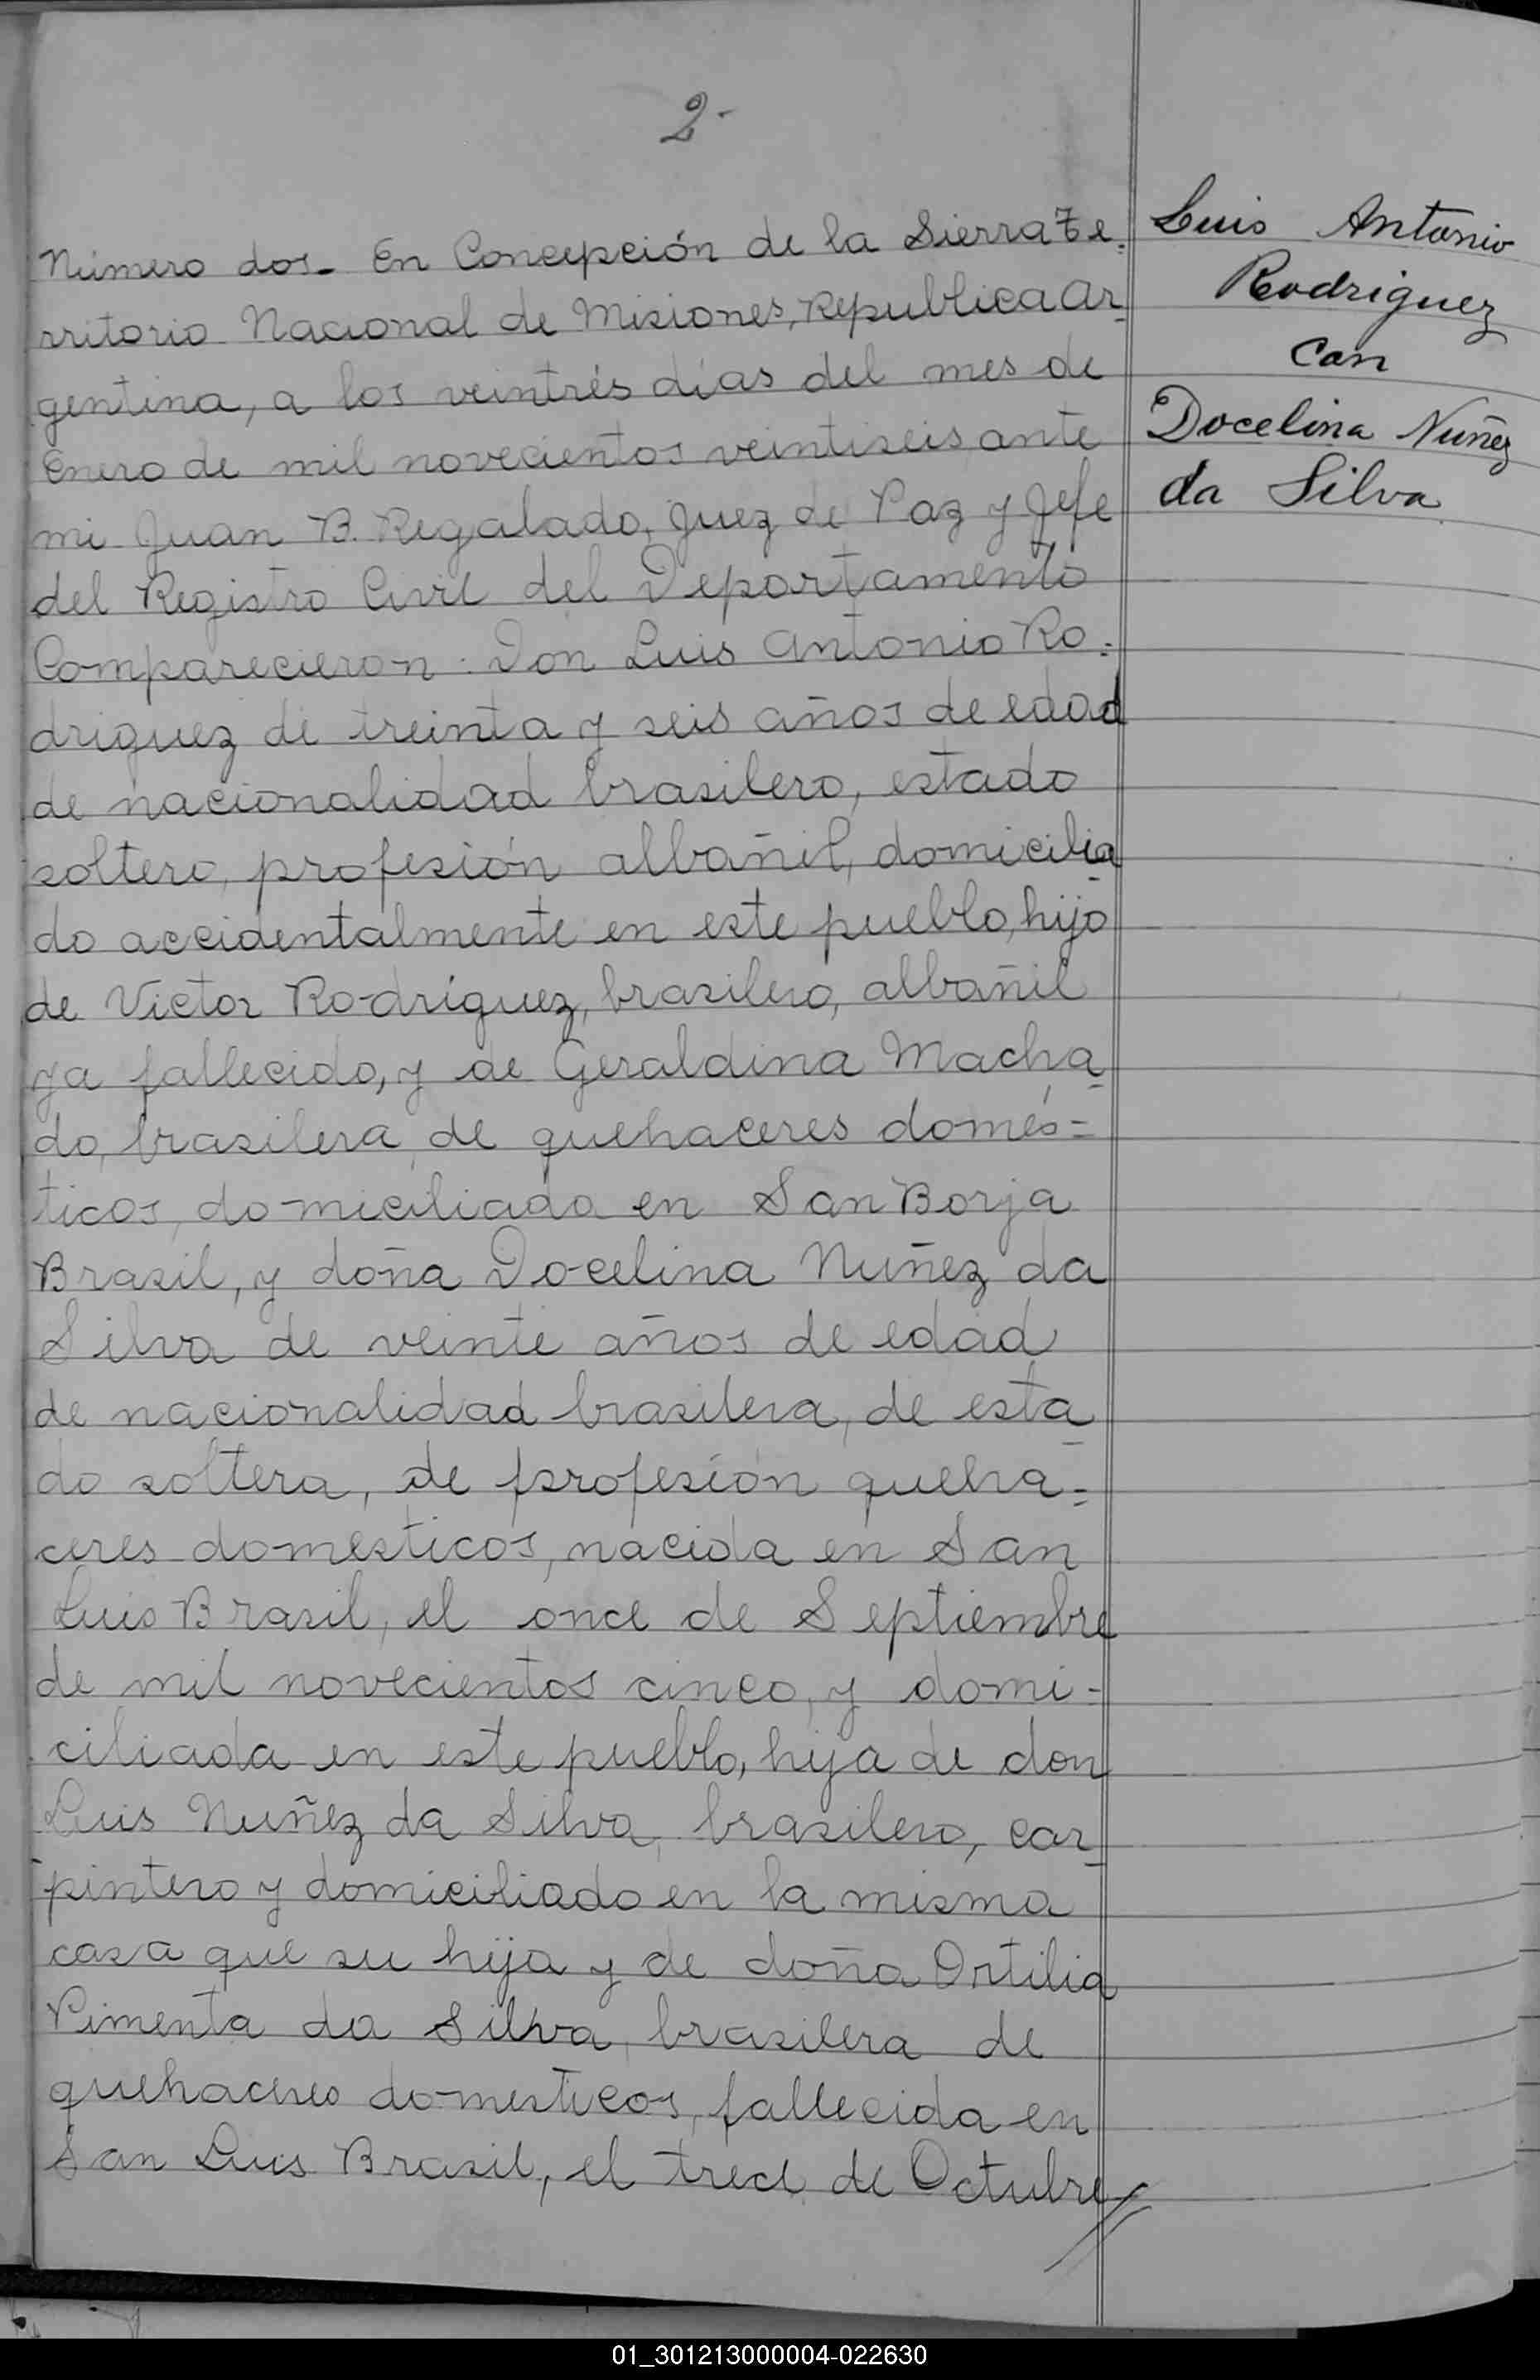 2-
Número dos.- En Concepción de la Sierra Te=
rritorio Nacional de Misiones, Republica Ar-
gentina, a los veintrés días del mes de
Enero de mil novecientos veintiseis ante
mi Juan B. Regalado, Juez de Paz y Jefe
del Registro Civil del Deportamento
Comparecieron: Don Luis Antonio Ro=
driguez de treinta y seis años de edad
de nacionalidad brasilero, estado
soltero, profesión albañil, domicilia-
do accidentalmente en este pueblo, hijo
de Victor Rodríguez, brasilero, albañil
ya fallecido, y de Geraldina Macha-
do, brasilera, de quehaceres domés=
ticos, domiciliada en San Borja
Brasil, y doña Docelina Nuñez da
Silva de veinte años de edad
de nacionalidad brasilera, de esta-
do soltera, de profesión queha=
ceres domesticos, nacida en San
Luis Brasil, el once de Septiembre
de mil novecientos cinco, y domi=
ciliada en este pueblo, hija de don
Luis Nuñez da Silva, brasilero, car-
pintero y domiciliado en la misma
casa que su hija y de doña Ortilia
Pimenta da Silva, brasilera de
quehaceres domesticos, fallecida en
San Luis Brasil, el trece de Octubre//
Luis Antonio
Rodriguez
con
Docelina Nuñez
da Silva
01_301213000004-022630